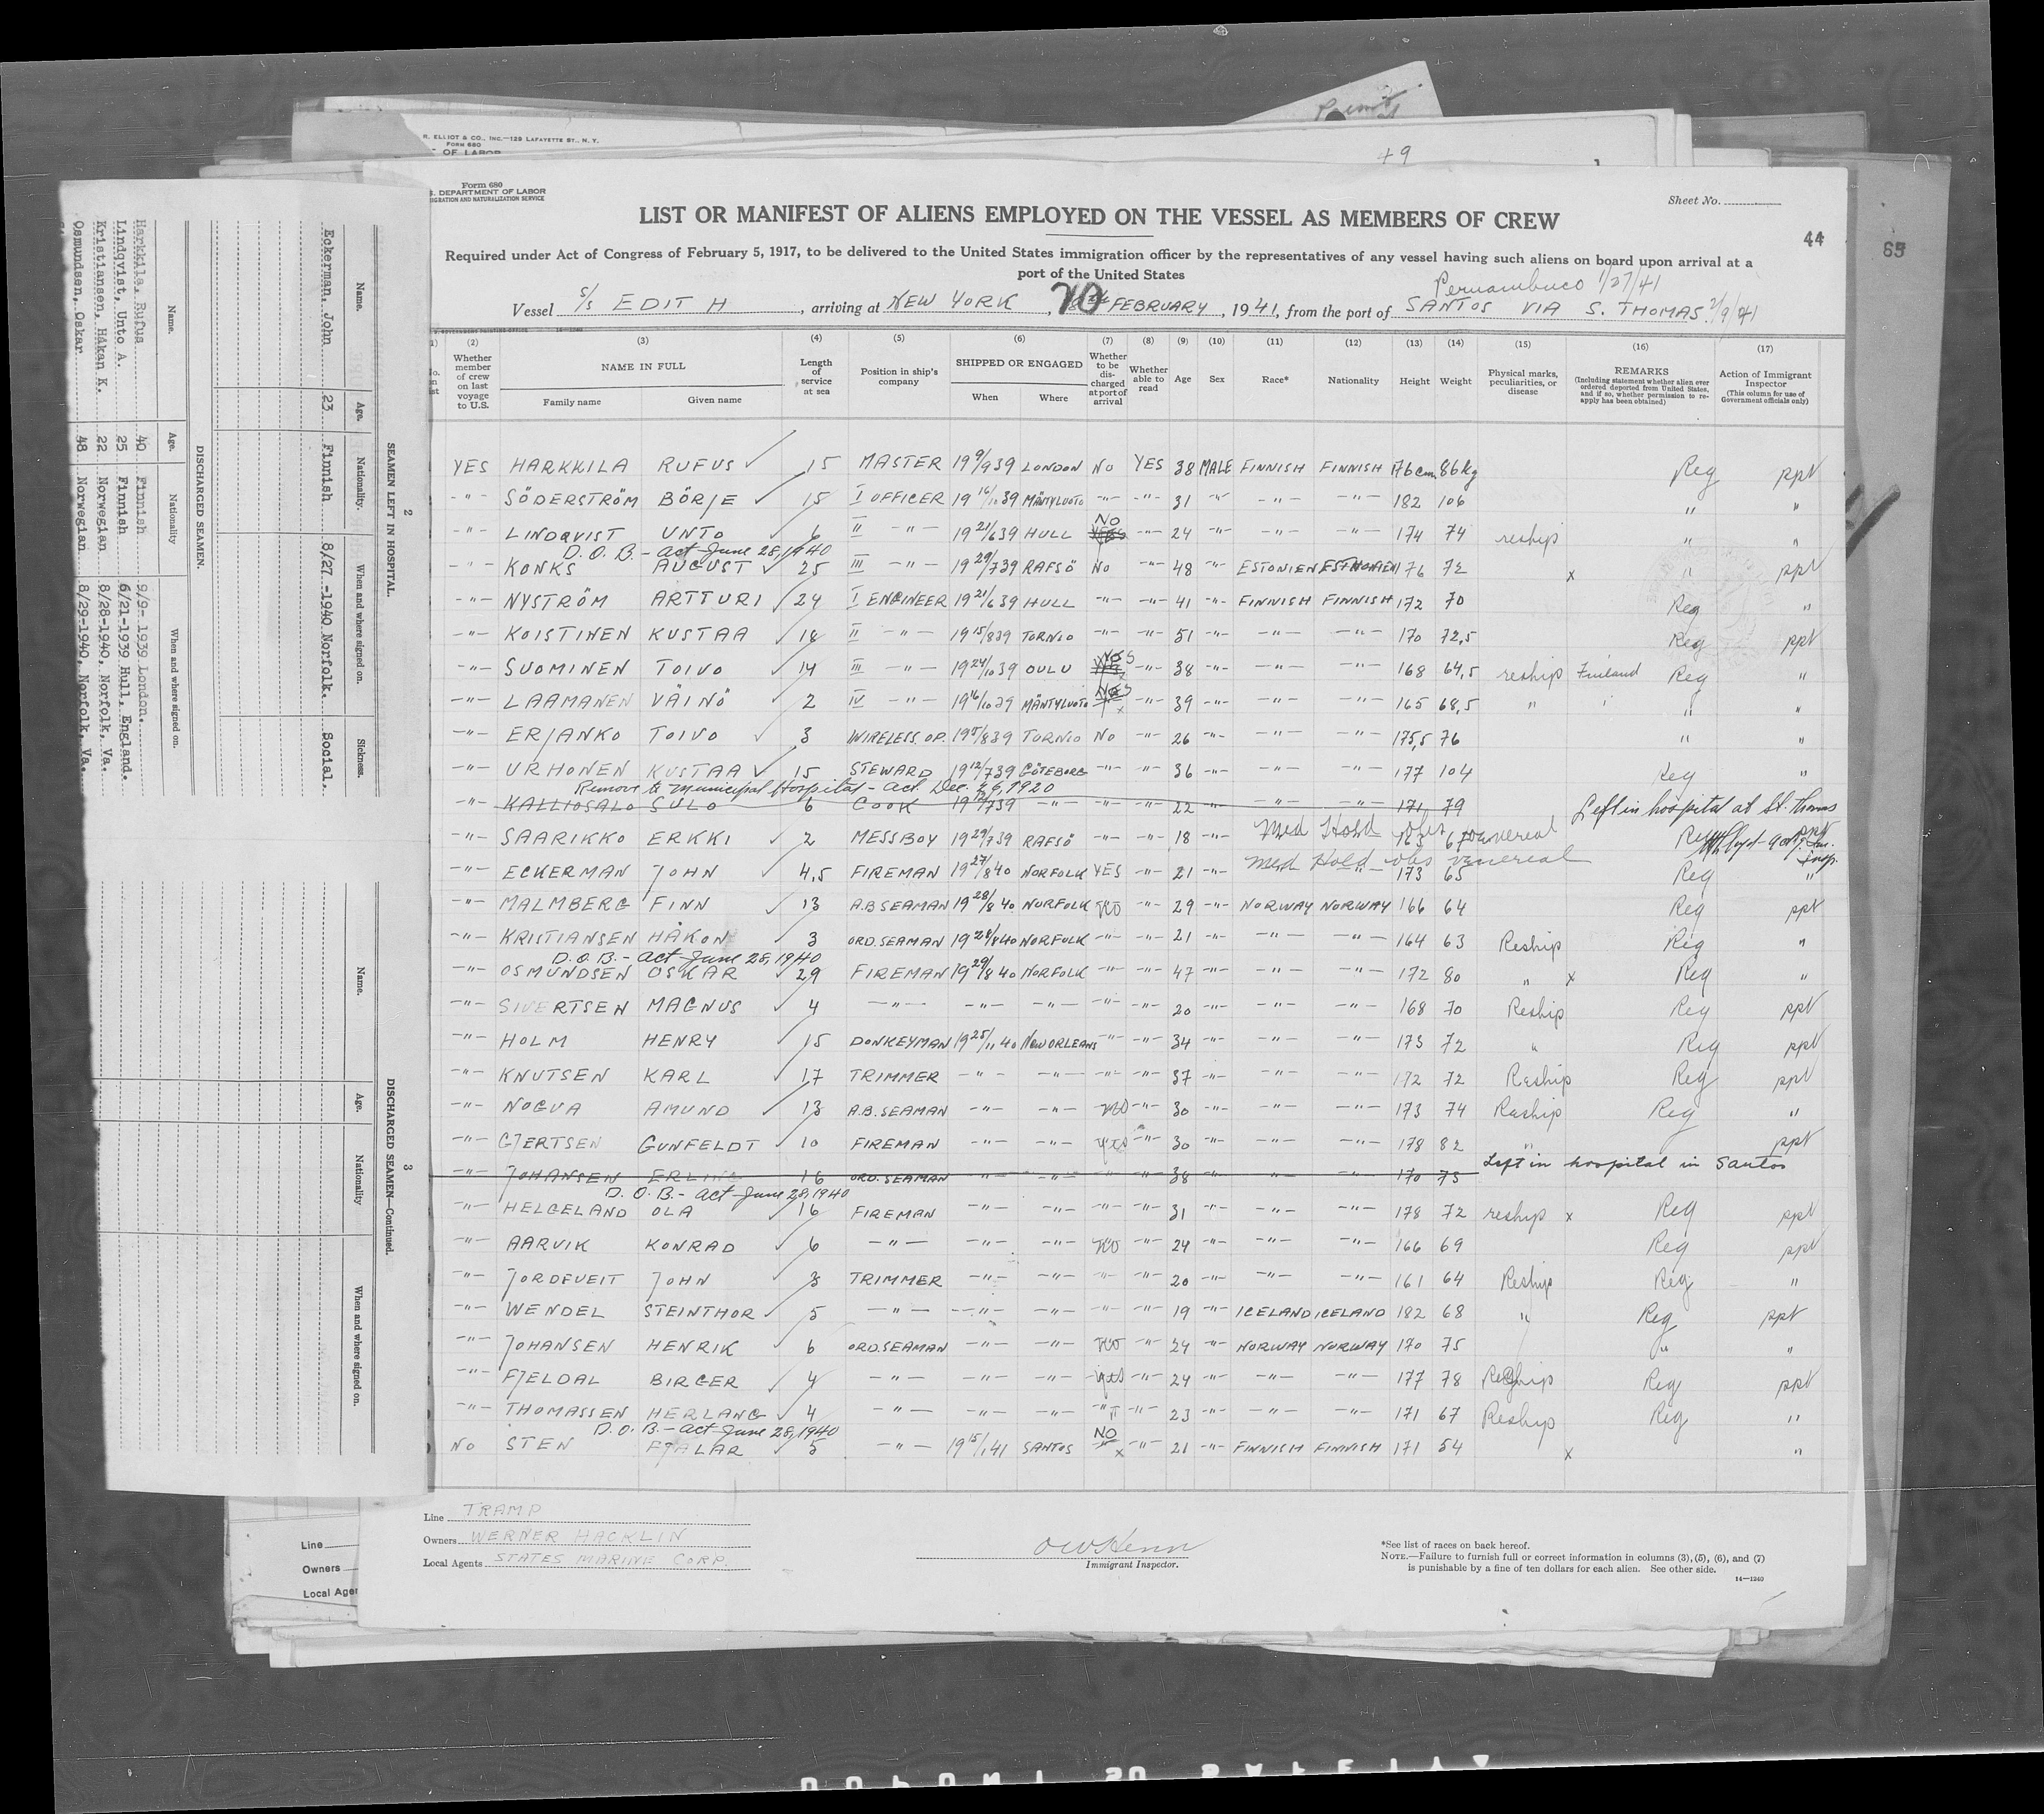 R. ELLIOT & CO., INC.—129 LAFAYETTE ST., N. Y.
FORM 680
OF LABOR
+9
Form 680
S. DEPARTMENT OF LABOR
IGRATION AND NATURALIZATION SERVICE
Sheet No.
LIST OR MANIFEST OF ALIENS EMPLOYED ON THE VESSEL AS MEMBERS OF CREW
44
65
Required under Act of Congress of February 5, 1917, to be delivered to the United States immigration officer by the representatives of any vessel having such aliens on board upon arrival at a
port of the United States
Pernambuco 1/27/41
Vessel S/S EDIT H, arriving at NEW YORK, 20 FEBRUARY, 1941, from the port of SANTOS VIA S. THOMAS 2/9/41
(2) (3) (4) (5) (6) (7) (8) (9) (10) (11) (12) (13) (14) (15) (16) (17)
Whether member of crew on last voyage to U.S. NAME IN FULL Family name Given name Length of service at sea Position in ship's company SHIPPED OR ENGAGED When Where Whether to be discharged at port of arrival Whether able to read Age Sex Race* Nationality Height Weight Physical marks, peculiarities, or disease REMARKS (Including statement whether alien ever ordered deported from United States, and if so, whether permission to reapply has been obtained) Action of Immigrant Inspector (This column for use of Government officials only)
YES HARKKILA RUFUS ✓ 15 MASTER 19 9/9 39 LONDON NO YES 38 MALE FINNISH FINNISH 176cm 86kg Reg ppt
-"- SÖDERSTRÖM BÖRJE ✓ 15 I OFFICER 19 16/11 39 MÄNTYLUOTO -"- -"- 31 -"- -"- -"- 182 106 " "
-"- LINDQVIST UNTO 6 II -"- 19 21/6 39 HULL NO -"- 24 -"- -"- -"- 174 74 reship " "
D.O.B. - act June 28, 1940
-"- KONKS AUGUST ✓ 25 III -"- 19 29/7 39 RAFSÖ NO -"- 48 -"- ESTONIEN ESTHONIEN 176 72 x " ppt
-"- NYSTRÖM ARTTURI ✓ 24 I ENGINEER 19 21/6 39 HULL -"- -"- 41 -"- FINNISH FINNISH 172 70 Reg "
-"- KOISTINEN KUSTAA ✓ 18 II -"- 19 15/8 39 TORNIO -"- -"- 51 -"- -"- -"- 170 72,5 Reg ppt
-"- SUOMINEN TOIVO ✓ 14 III -"- 19 24/10 39 OULU -"- 38 -"- -"- -"- 168 64,5 reship Finland Reg "
-"- LAAMANEN VÄINÖ ✓ 2 IV -"- 19 16/10 39 MÄNTYLUOTO x -"- 39 -"- -"- -"- 165 68,5 " " " "
-"- ERJANKO TOIVO ✓ 3 WIRELESS. OP. 19 5/8 39 TORNIO NO -"- 26 -"- -"- -"- 175,5 76 " "
-"- URHONEN KUSTAA ✓ 15 STEWARD 19 12/7 39 GÖTEBORG -"- -"- 36 -"- -"- -"- 177 104 Reg "
Remove to Municipal Hospital - act. Dec. 26, 1920
-"- KALLIOSALO SULO 6 COOK 19 12/7 39 -"- -"- -"- 22 -"- -"- 171 79 Left in hospital at St. Thomas
-"- SAARIKKO ERKKI ✓ 2 MESSBOY 19 29/7 39 RAFSÖ -"- -"- 18 -"- Med Hold obs venereal 163 67 Reg ppt
-"- ECKERMAN JOHN ✓ 4,5 FIREMAN 19 27/8 40 NORFOLK YES -"- 21 -"- Med Hold obs venereal 173 65 Reg "
-"- MALMBERG FINN ✓ 13 A.B SEAMAN 19 28/8 40 NORFOLK NO -"- 29 -"- NORWAY NORWAY 166 64 Reg ppt
-"- KRISTIANSEN HÅKON 3 ORD. SEAMAN 19 28/8 40 NORFOLK -"- -"- 21 -"- -"- -"- 164 63 Reship Reg "
D.O.B. - act June 28, 1940
-"- OSMUNDSEN OSKAR ✓ 29 FIREMAN 19 29/8 40 NORFOLK -"- -"- 47 -"- -"- -"- 172 80 " x Reg "
-"- SIVERTSEN MAGNUS ✓ 4 -"- -"- -"- -"- -"- 20 -"- -"- -"- 168 70 Reship Reg ppt
-"- HOLM HENRY ✓ 15 DONKEYMAN 19 25/11 40 NEW ORLEANS -"- -"- 34 -"- -"- -"- 173 72 " Reg ppt
-"- KNUTSEN KARL ✓ 17 TRIMMER -"- -"- -"- -"- 37 -"- -"- -"- 172 72 Reship Reg ppt
-"- NOGVA AMUND ✓ 13 A.B. SEAMAN -"- -"- NO -"- 30 -"- -"- -"- 173 74 Reship Reg "
-"- GJERTSEN GUNFELDT ✓ 10 FIREMAN -"- -"- yes -"- 30 -"- -"- -"- 178 82 " ppt
-"- JOHANSEN ERLING 16 ORD. SEAMAN -"- -"- 38 -"- -"- 170 75 Left in hospital in Santos
D.O.B. - act June 28, 1940
-"- HELGELAND OLA ✓ 16 FIREMAN -"- -"- -"- -"- 31 -"- -"- -"- 178 72 reship x Reg ppt
-"- AARVIK KONRAD ✓ 6 -"- -"- -"- NO -"- 24 -"- -"- -"- 166 69 Reg ppt
-"- JORDEVEIT JOHN ✓ 3 TRIMMER -"- -"- -"- -"- 20 -"- -"- -"- 161 64 Reship Reg "
-"- WENDEL STEINTHOR ✓ 5 -"- -"- -"- -"- -"- 19 -"- ICELAND ICELAND 182 68 " Reg ppt
-"- JOHANSEN HENRIK ✓ 6 ORD. SEAMAN -"- -"- NO -"- 24 -"- NORWAY NORWAY 170 75 " "
-"- FJELDAL BIRGER ✓ 4 -"- -"- -"- yes -"- 24 -"- -"- -"- 177 78 Reship Reg ppt
-"- THOMASSEN HERLANG ✓ 4 -"- -"- -"- -"- -"- 23 -"- -"- -"- 171 67 Reship Reg "
D.O.B. - act June 28, 1940
NO STEN FJALAR ✓ 5 -"- 19 15/1 41 SANTOS NO x -"- 21 -"- FINNISH FINNISH 171 54 x "
Line TRAMP
Owners WERNER HACKLIN
Local Agents STATES MARINE CORP.
Immigrant Inspector.
*See list of races on back hereof.
NOTE.—Failure to furnish full or correct information in columns (3), (5), (6), and (7)
is punishable by a fine of ten dollars for each alien. See other side.
14—1240
Line
Owners
Local Ager
2
SEAMEN LEFT IN HOSPITAL.
Name. Age. Nationality. When and where signed on. Sickness.
Eckerman, John 23 Finnish 8/27 -1940 Norfolk. Social.
DISCHARGED SEAMEN.
Name. Age. Nationality When and where signed on.
Harkkila, Rufus 40 Finnish 9/9- 1939 London.
Lindqvist, Unto A. 25 Finnish 6/21-1939 Hull, England.
Kristiansen, Håkan K. 22 Norwegian 8/28-1940, Norfolk, Va.
Osmundsen, Oskar 48 Norwegian 8/29-1940, Norfolk, Va.
3
DISCHARGED SEAMEN—Continued.
Name. Age. Nationality When and where signed on.